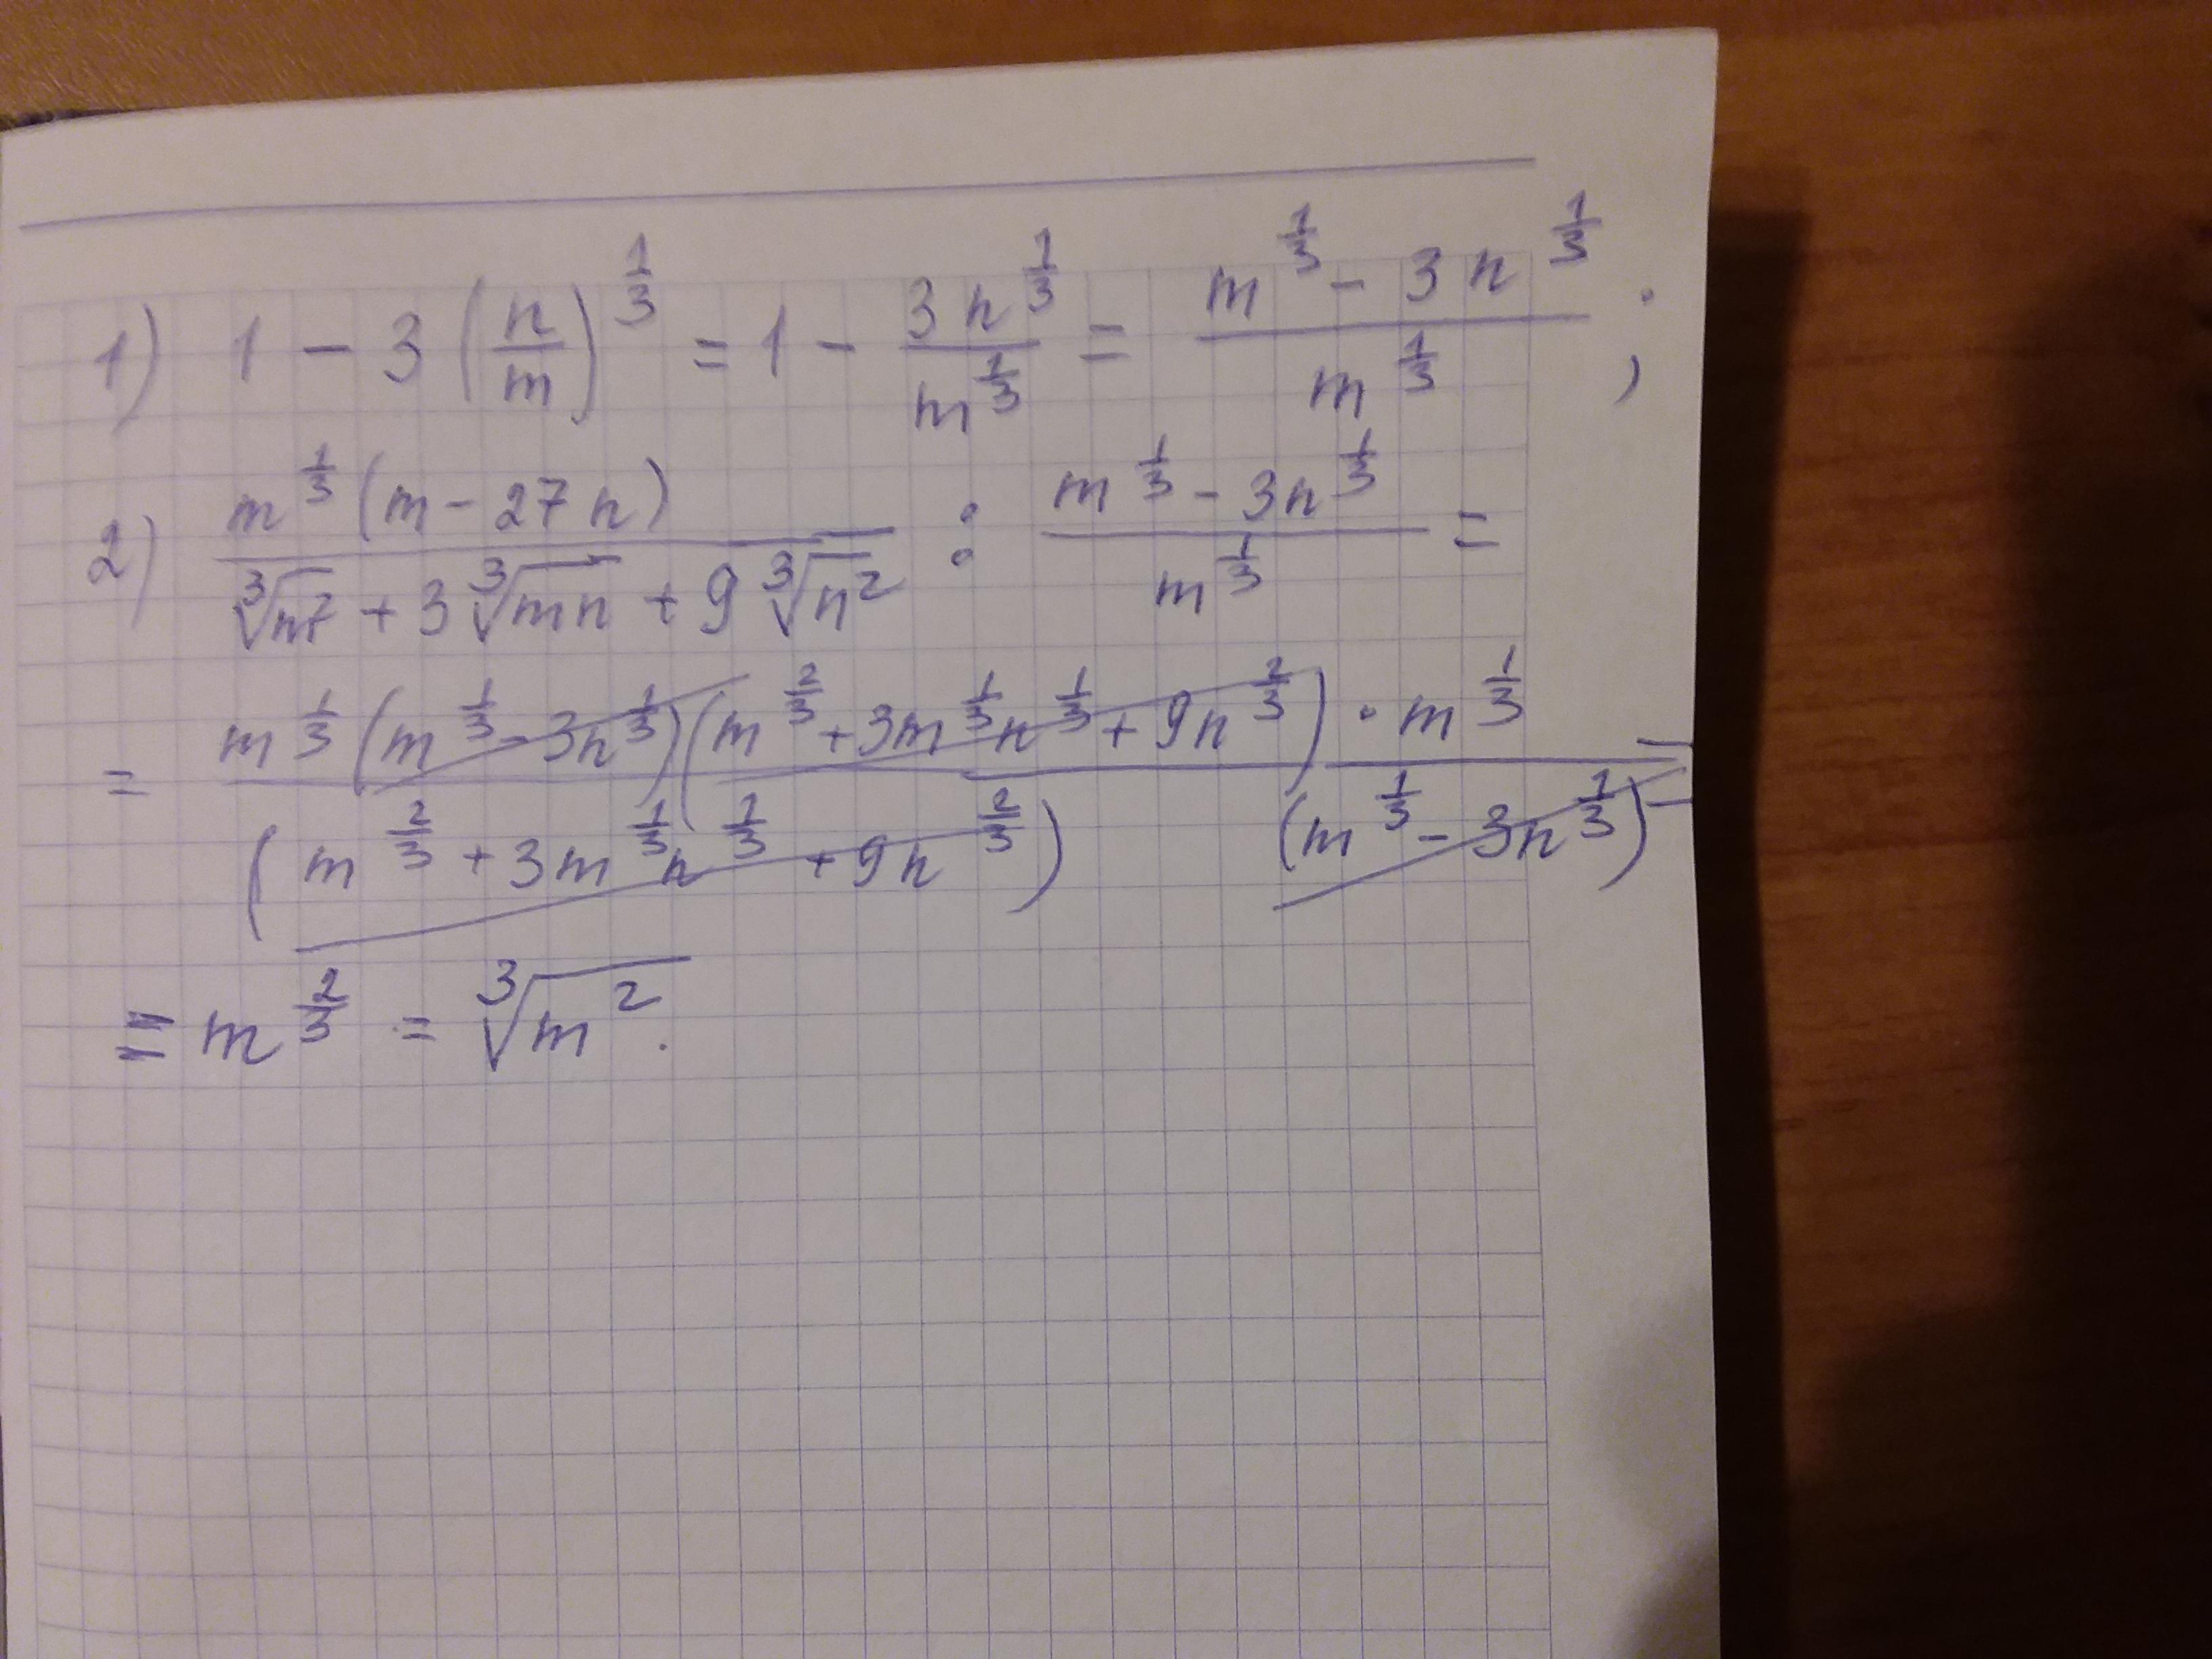 1) 1 - 3 (n/m)^(1/3) = 1 - 3n^(1/3)/m^(1/3) = (m^(1/3) - 3n^(1/3))/m^(1/3) ;
2) m^(1/3)(m - 27n)/(∛m² + 3∛mn + 9∛n²) : (m^(1/3) - 3n^(1/3))/m^(1/3) =
= m^(1/3)(m^(1/3) - 3n^(1/3))(m^(2/3) + 3m^(1/3)n^(1/3) + 9n^(2/3)) · m^(1/3) / (m^(2/3) + 3m^(1/3)n^(1/3) + 9n^(2/3)) (m^(1/3) - 3n^(1/3)) =
= m^(2/3) = ∛m² .